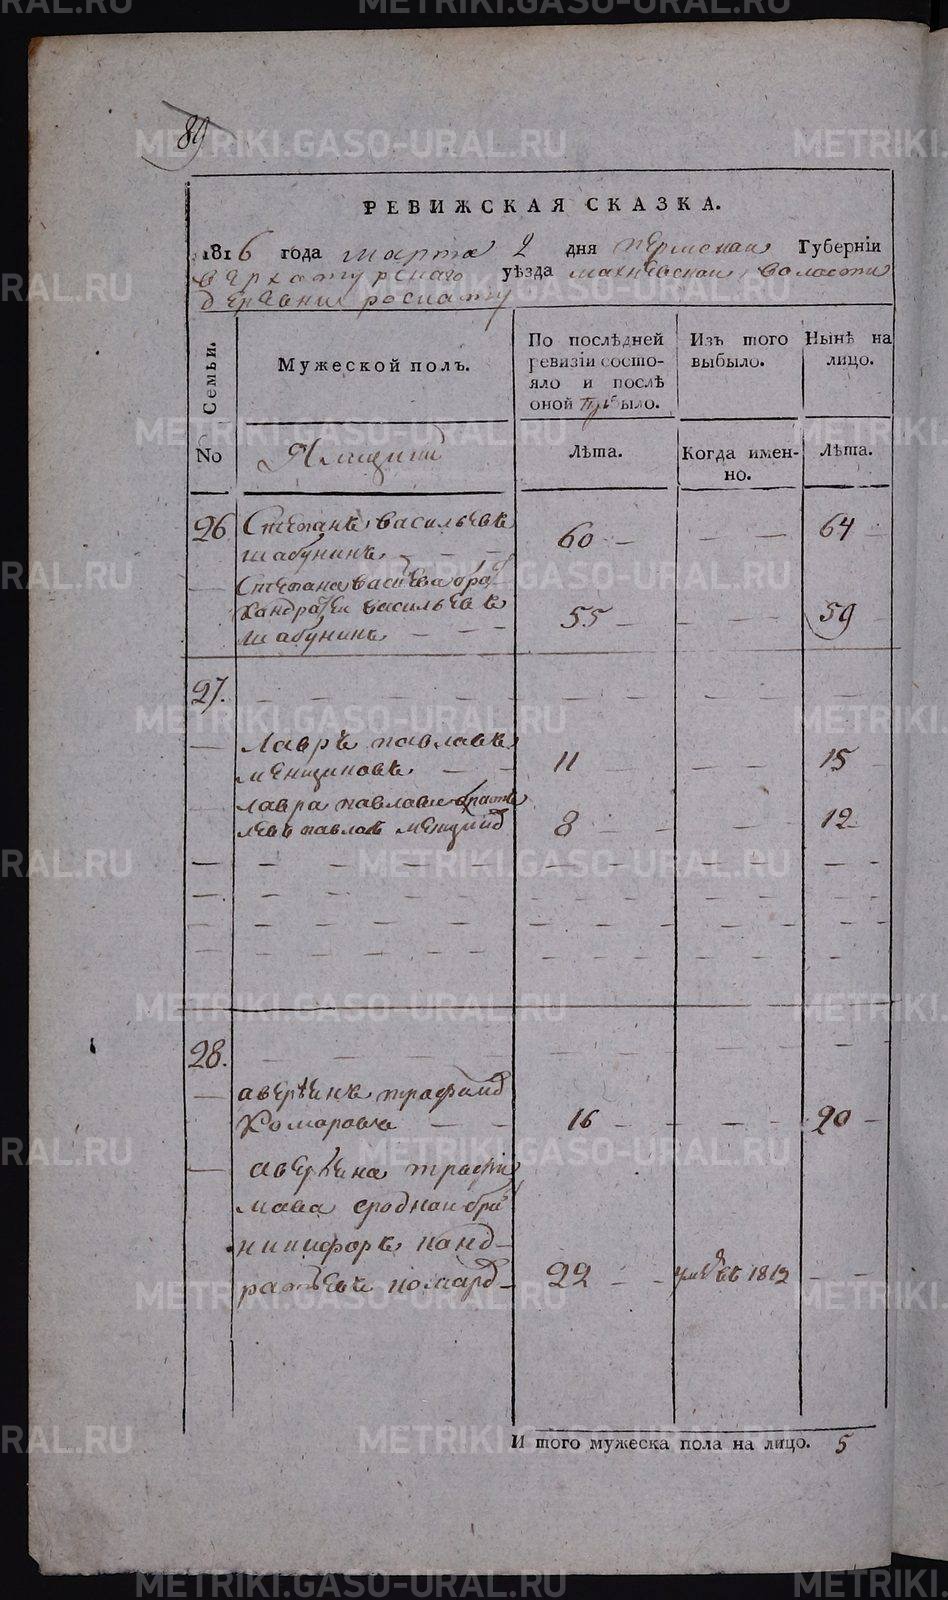 METRIKI.GASO-URAL.RU
89
РЕВИЖСКАЯ СКАЗКА.
1816 года марта 2 дня пермскаи Губерніи
верхатурскаго уѣзда махневскаи воласти
деревни
Семьи.
Мужеской полъ.
По послѣдней ревизіи состо-
яло и послѣ
оной прибыло.
Изъ того
выбыло.
Нынѣ на
лицо.
No
Ямщики
Лѣта.
Когда имен-
но.
Лѣта.
26 Степанъ васильевъ
шабунинъ 60 — — — 64
Степана васильева бра
Хандратеи васильевъ
шабунинъ 55 — — — 59
27.
Лавръ павлавъ
менщиковъ 11 — — — 15
лавра павлава братъ
левъ павлов менщиков 8 — — — 12
28.
аверѣенъ трафимов
Комаровъ 16 — — — 20
аверѣена трафи
мава сроднаи бра
никифоръ канд-
ратьевъ комаров 22 — умре въ 1812 — —
И того мужеска пола на лицо. 5